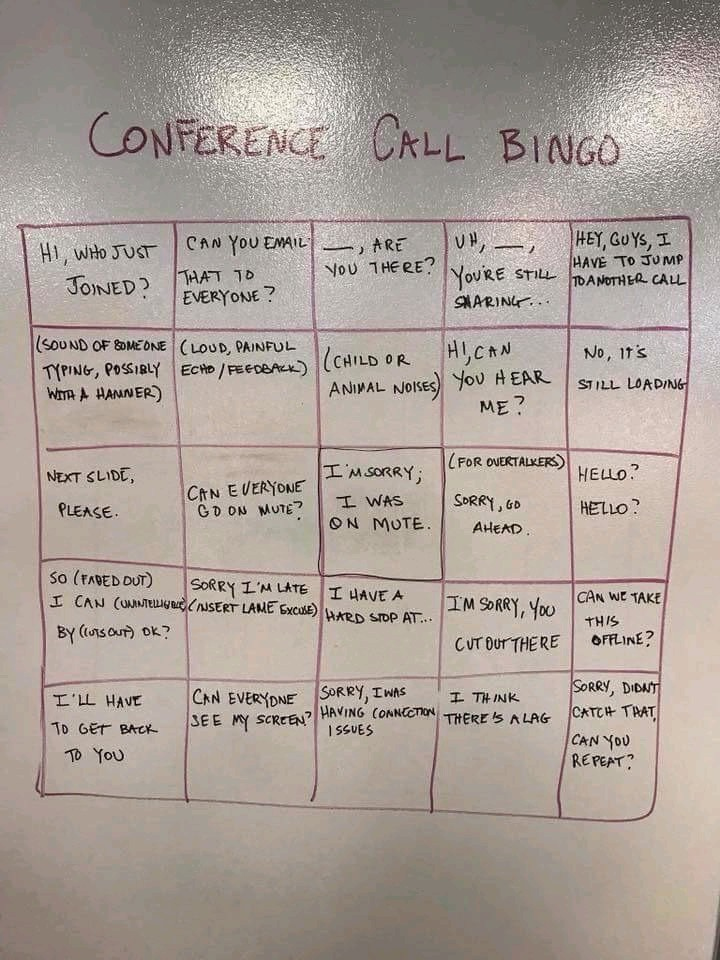 CONFERENCE CALL BINGO
HI, WHO JUST
JOINED?
CAN YOU EMAIL
THAT TO
EVERYONE?
__, ARE
YOU THERE?
UH, __,
YOU'RE STILL
SHARING...
HEY, GUYS, I
HAVE TO JUMP
TO ANOTHER CALL
(SOUND OF SOMEONE
TYPING, POSSIBLY
WITH A HAMMER)
(LOUD, PAINFUL
ECHO / FEEDBACK)
(CHILD OR
ANIMAL NOISES)
HI, CAN
YOU HEAR
ME?
NO, IT'S
STILL LOADING
NEXT SLIDE,
PLEASE.
CAN EVERYONE
GO ON MUTE?
I'M SORRY;
I WAS
ON MUTE.
(FOR OVERTALKERS)
SORRY, GO
AHEAD.
HELLO?
HELLO?
SO (FADED OUT)
I CAN (UNINTELLIGIBLE)
BY (CUTS OUT) OK?
SORRY I'M LATE
(INSERT LAME EXCUSE)
I HAVE A
HARD STOP AT...
I'M SORRY, YOU
CUT OUT THERE
CAN WE TAKE
THIS
OFFLINE?
I'LL HAVE
TO GET BACK
TO YOU
CAN EVERYONE
SEE MY SCREEN?
SORRY, I WAS
HAVING CONNECTION
ISSUES
I THINK
THERE'S A LAG
SORRY, DIDN'T
CATCH THAT,
CAN YOU
REPEAT?